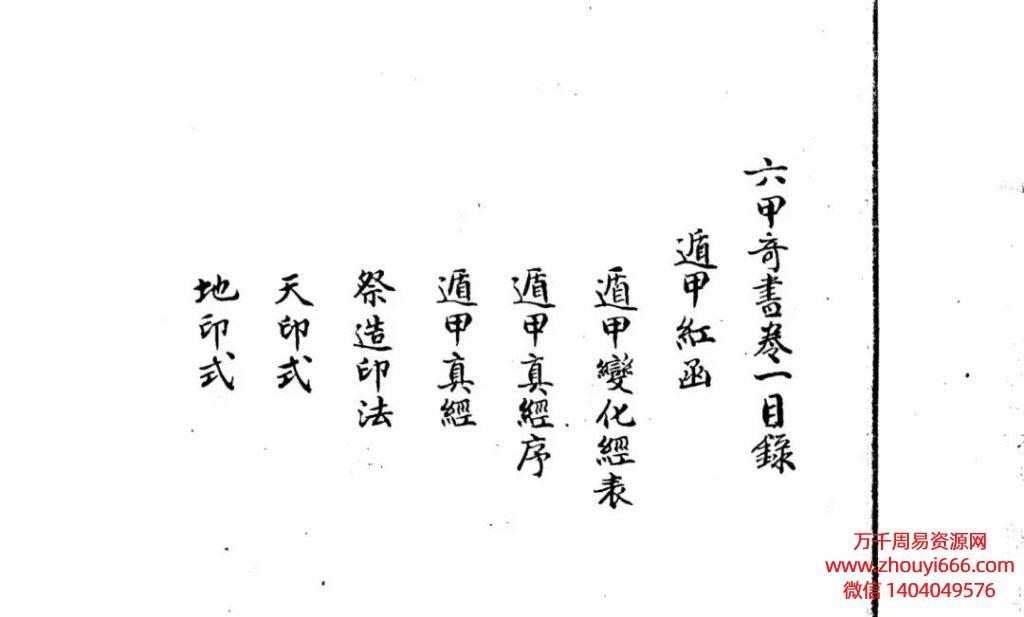 六甲奇書卷一目錄
遁甲紅函
遁甲變化經表
遁甲真經序
遁甲真經
祭造印法
天印式
地印式
万千周易资源网
www.zhouyi666.com
微信 1404049576